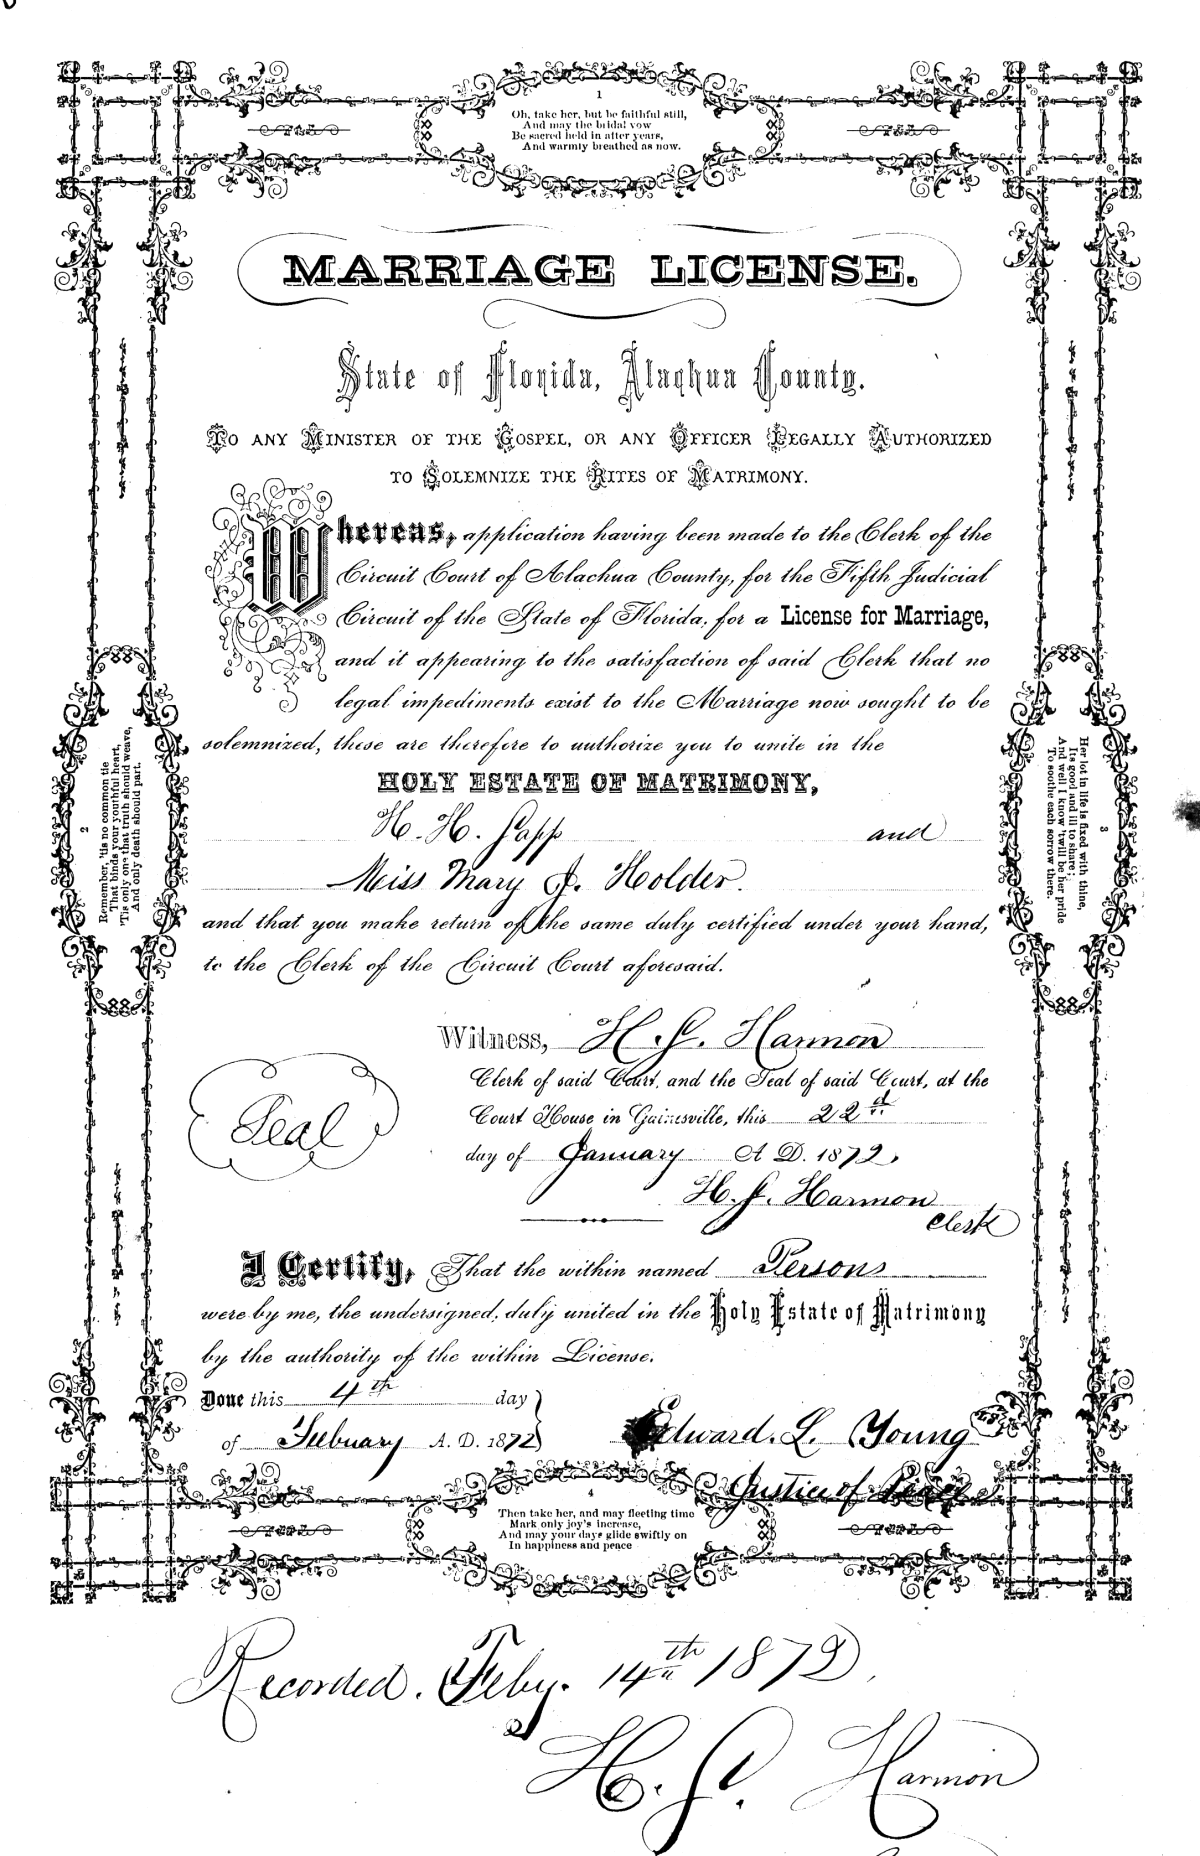 1
Oh, take her, but be faithful still,
And may the bridal vow
Be sacred held in after years,
And warmly breathed as now.
MARRIAGE LICENSE.
State of Florida, Alachua County.
TO ANY MINISTER OF THE GOSPEL, OR ANY OFFICER LEGALLY AUTHORIZED
TO SOLEMNIZE THE RITES OF MATRIMONY.
Whereas, application having been made to the Clerk of the
Circuit Court of Alachua County, for the Fifth Judicial
Circuit of the State of Florida, for a License for Marriage,
and it appearing to the satisfaction of said Clerk that no
legal impediments exist to the Marriage now sought to be
solemnized, these are therefore to authorize you to unite in the
HOLY ESTATE OF MATRIMONY,
H. H. Sapp and
Miss Mary J. Holder.
and that you make return of the same duly certified under your hand,
to the Clerk of the Circuit Court aforesaid.
2
Remember, 'tis no common tie
That binds your youthful heart,
'Tis only one that truth should weave,
And only death should part.
3
Her lot in life is fixed with thine,
Its good and ill to share;
And well I know 'twill be her pride
To soothe each sorrow there.
Witness, H. S. Harmon
Clerk of said Court, and the Seal of said Court, at the
Court House in Gainesville, this 22d
day of January A. D. 1872,
H. S. Harmon
Clerk
Seal
I Certify, That the within named Persons
were by me, the undersigned, duly united in the Holy Estate of Matrimony
by the authority of the within License.
Done this 4th day
of Febuary A. D. 1872
Edward. L. Young
Justice of Peace
4
Then take her, and may fleeting time
Mark only joy's increase,
And may your days glide swiftly on
In happiness and peace
Recorded. Feby. 14th 1872.
H. S. Harmon